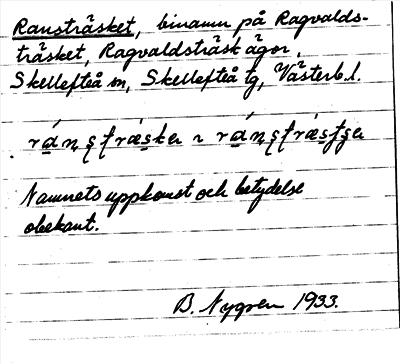 Ransträsket, binamn på Ragvalds-
träsket, Ragvaldsträsk ägor,
Skellefteå sn, Skellefteå tg, Västerb. l.
Namnets uppkomst och betydelse
obekant.
B. Nygren 1933.